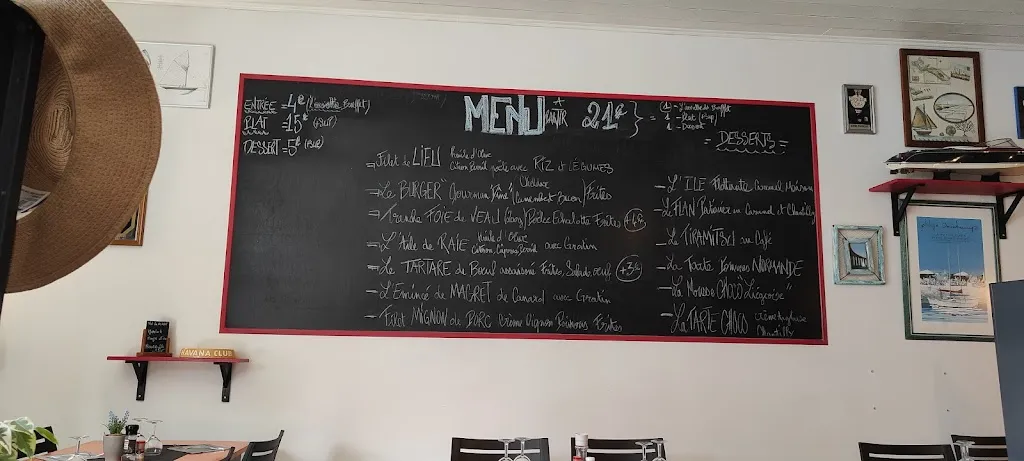 ENTRÉE = 4€ (1 assiette Buffet)
PLAT = 15€
DESSERT = 5€
MENU A PARTIR 21€
1 - Assiette Buffet
1 - Plat
1 - Dessert
= DESSERTS =
- Filet de LIEU Huile d'Olive
avec RIZ et LÉGUMES
- Le BURGER Gourman Cheddar Camembert Bacon / Frites
- Tranche FOIE de VEAU Poêlée Echalotte Frites +4€
- L'Aile de RAIE Huile d'Olive
Citron, Capres, Persil avec Gratin
- Le TARTARE de Boeuf assaisonné Frites, Salade, oeuf +3€
- L'Emincé de MAGRET de Canard avec Gratin
- Filet MIGNON de PORC Crème Oignon Frites
- L'ILE Flottante Caramel Maison
- Le FLAN Patissier au Caramel et Chantilly
- Le TIRAMISU au Café
- La Tarte Pommes NORMANDE
- La Mousse CHOCO Liégeoise"
- La TARTE CHOCO crème Anglaise
Chantilly
HAVANA CLUB